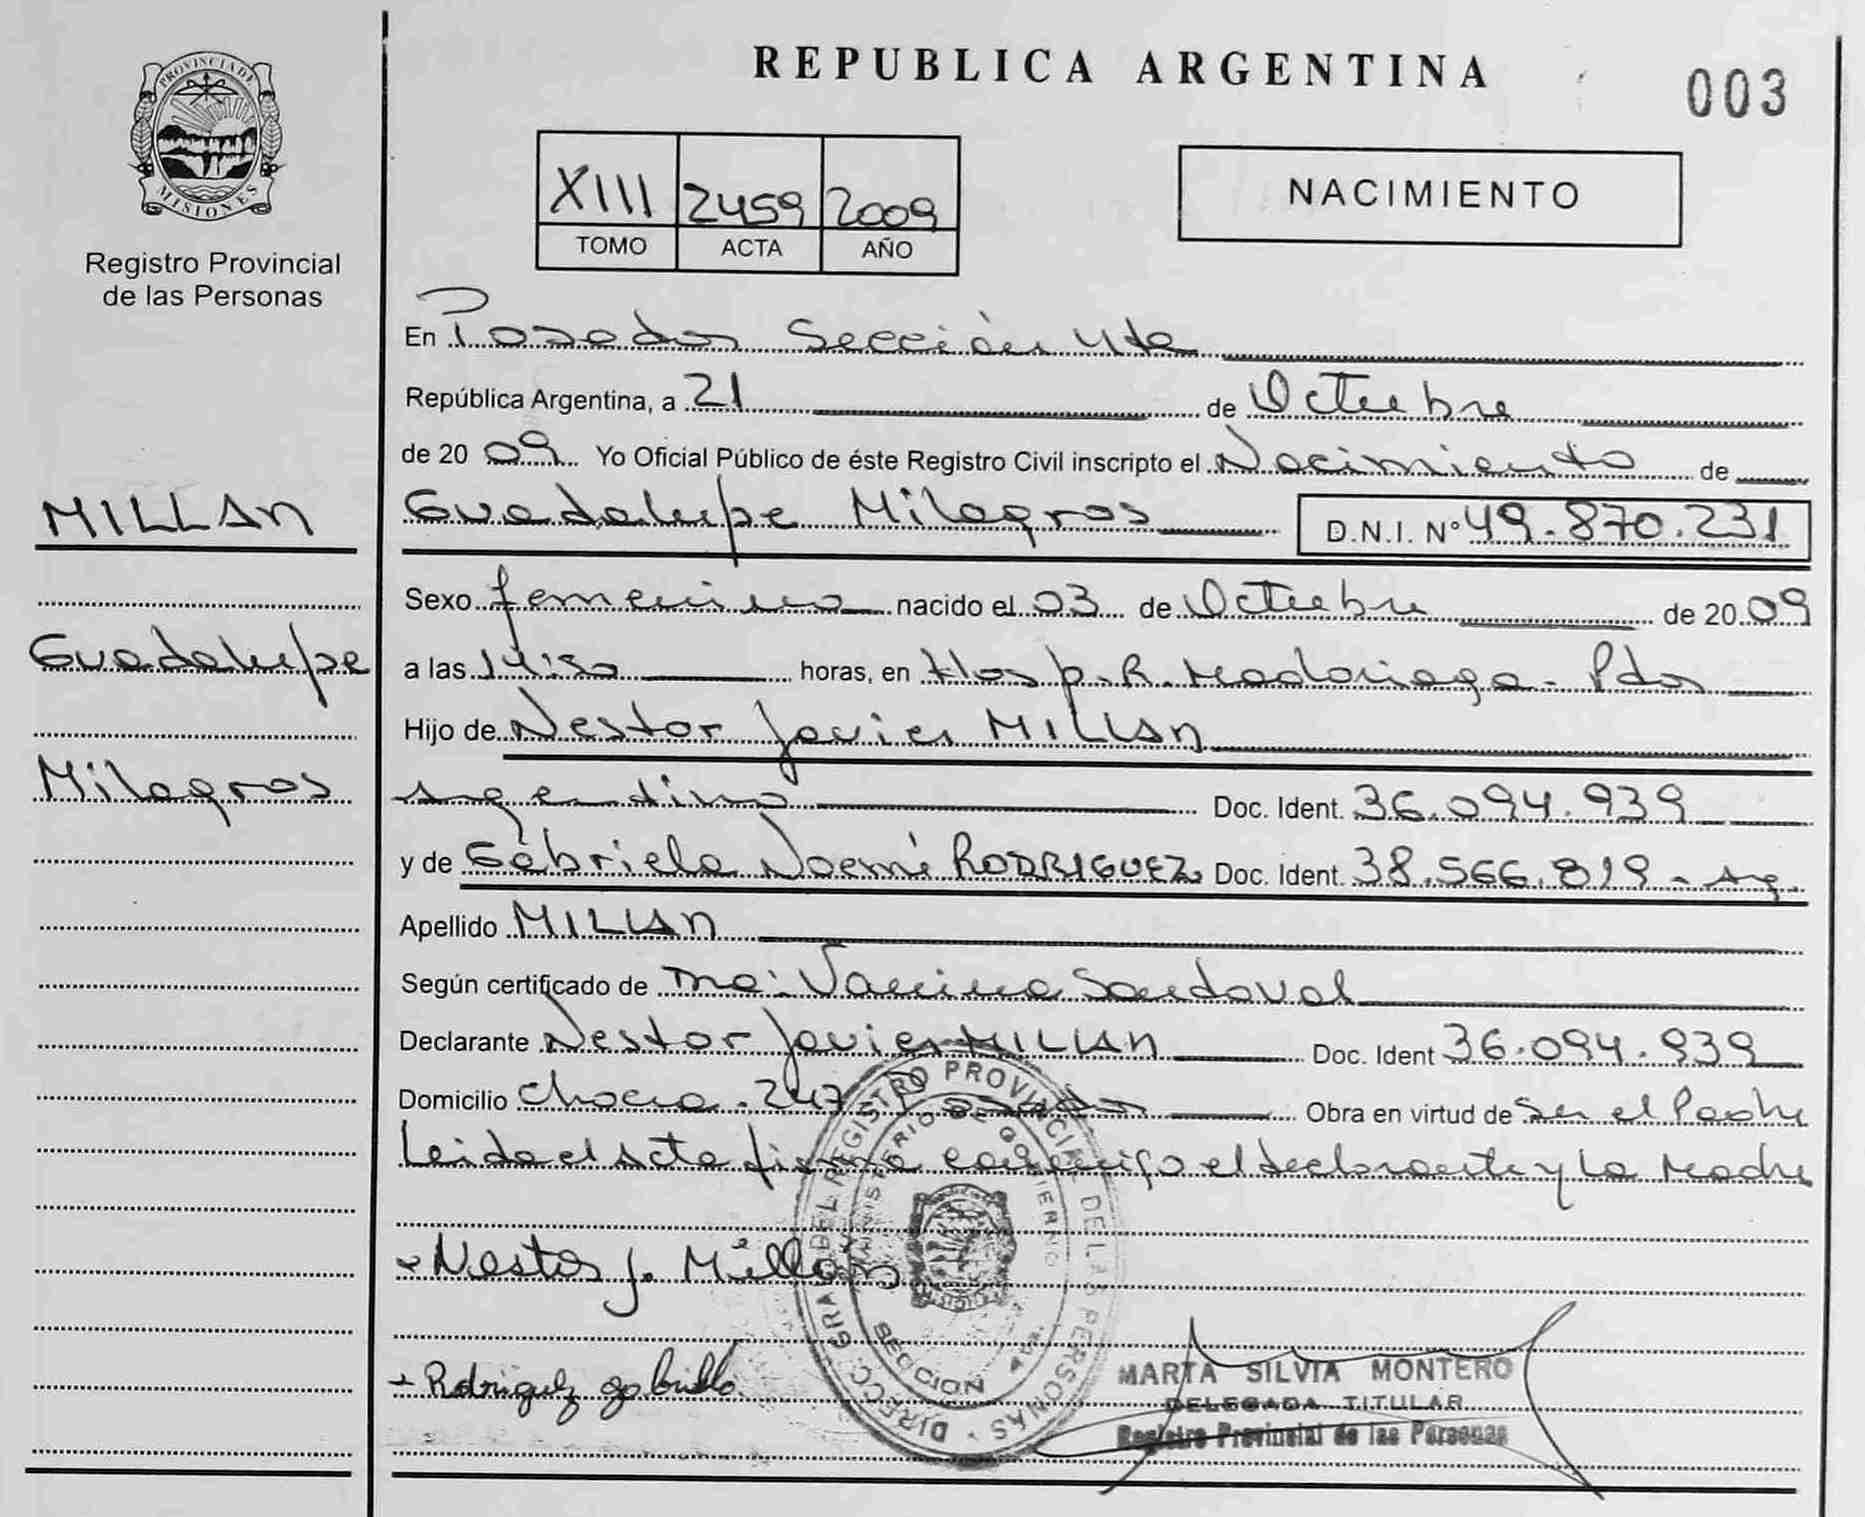 REPUBLICA ARGENTINA
003
PROVINCIA DE
MISIONES
Registro Provincial
de las Personas
XIII 2459 2009
TOMO ACTA AÑO
NACIMIENTO
En Posadas Sección 4ta
República Argentina, a 21 de Octubre
de 2009 Yo Oficial Público de éste Registro Civil inscripto el Nacimiento de
MILLAN
Guadalupe Milagros D.N.I. Nº 49.870.231
Sexo femenino nacido el 03 de Octubre de 2009
Guadalupe
a las 14:50 horas, en Hosp. R. Madariaga - Pdas
Hijo de Nestor Javier MILLAN
Milagros
argentino Doc. Ident. 36.094.939
y de Gabriela Noemí RODRIGUEZ Doc. Ident. 38.566.819 - Arg.
Apellido MILLAN
Según certificado de Vanina Sandoval
Declarante Nestor Javier MILLAN Doc. Ident 36.094.939
Domicilio Chacra. 247 Posadas Obra en virtud de Ser el Padre
Leida el Acta firma conmigo el declarante y La Madre
Nestor J. Millán
Rodriguez gabriela
DIRECC. GRAL. DEL REGISTRO PROVINCIAL DE LAS PERSONAS
MINISTERIO DE GOBIERNO
SECCION 4ta.
MARTA SILVIA MONTERO
DELEGADA TITULAR
Registro Provincial de las Personas